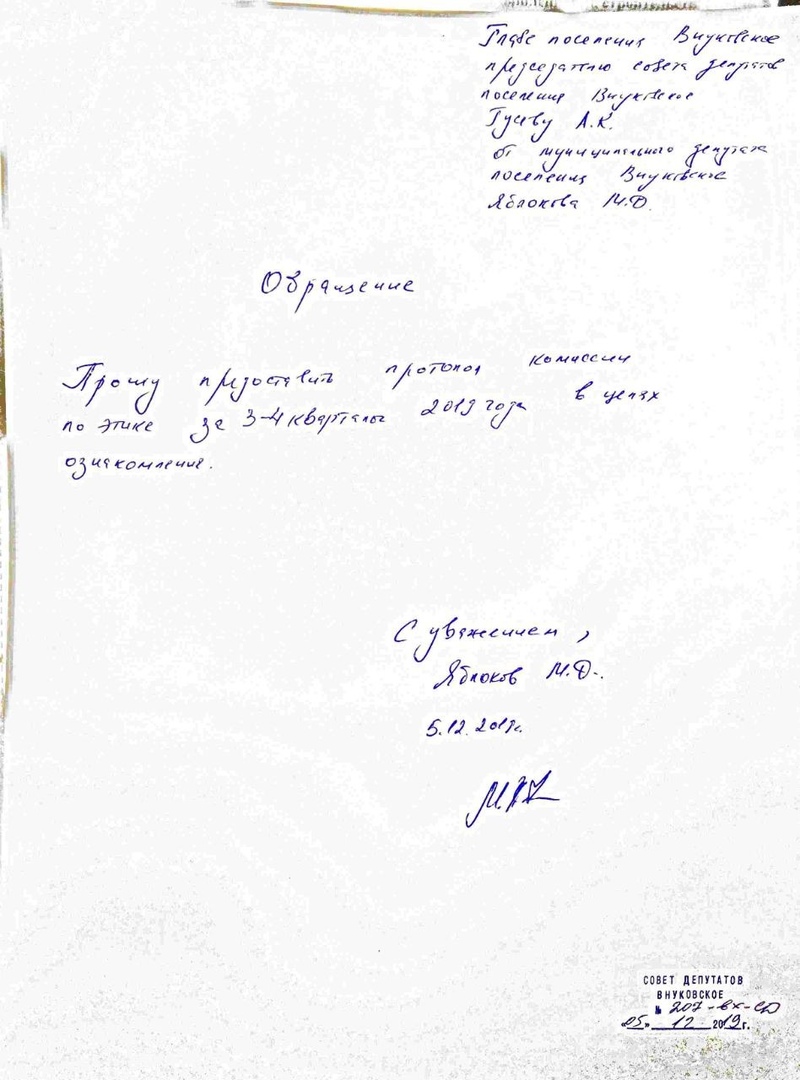 Главе поселения Внуковское
председателю совета депутатов
поселения Внуковское
Гусеву А.К.
от муниципального депутата
поселения Внуковское
Яблокова М.Д.
Обращение
Прошу предоставить протокол комиссии
по этике за 3-4 кварталы 2019 года в целях
ознакомления.
С уважением,
Яблоков М.Д.
5.12.2019г.
СОВЕТ ДЕПУТАТОВ
ВНУКОВСКОЕ
№ 207-вх-СД
«05» 12 2019 г.